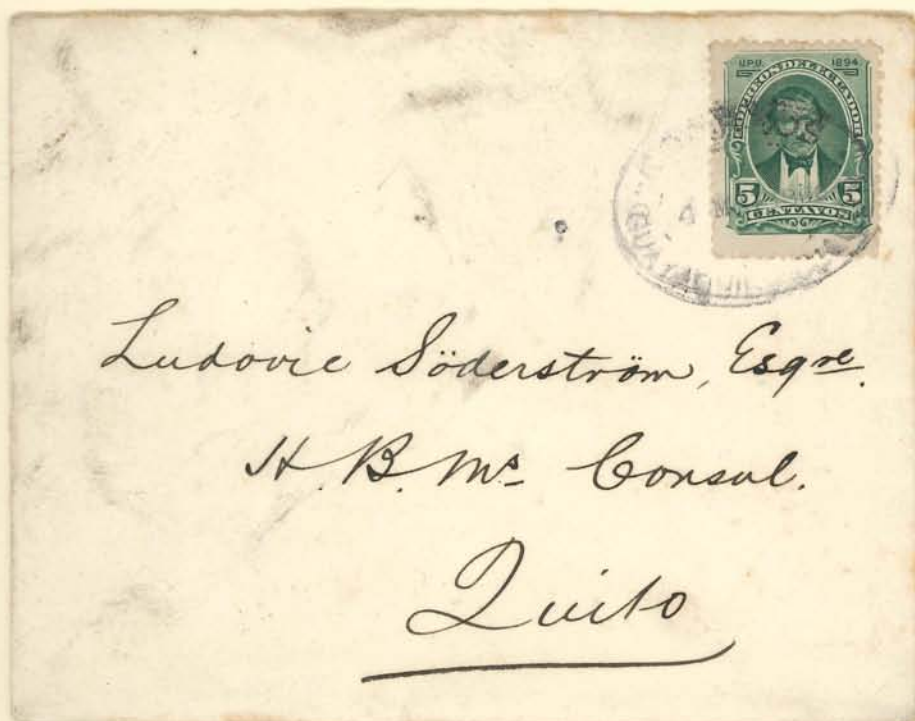 U.P.U. 1894
CORREOS DEL ECUADOR
5 5
CENTAVOS
4
GUAYAQUIL
Ludovic Söderström, Esqre.
H. B. Ms Consul.
Quito